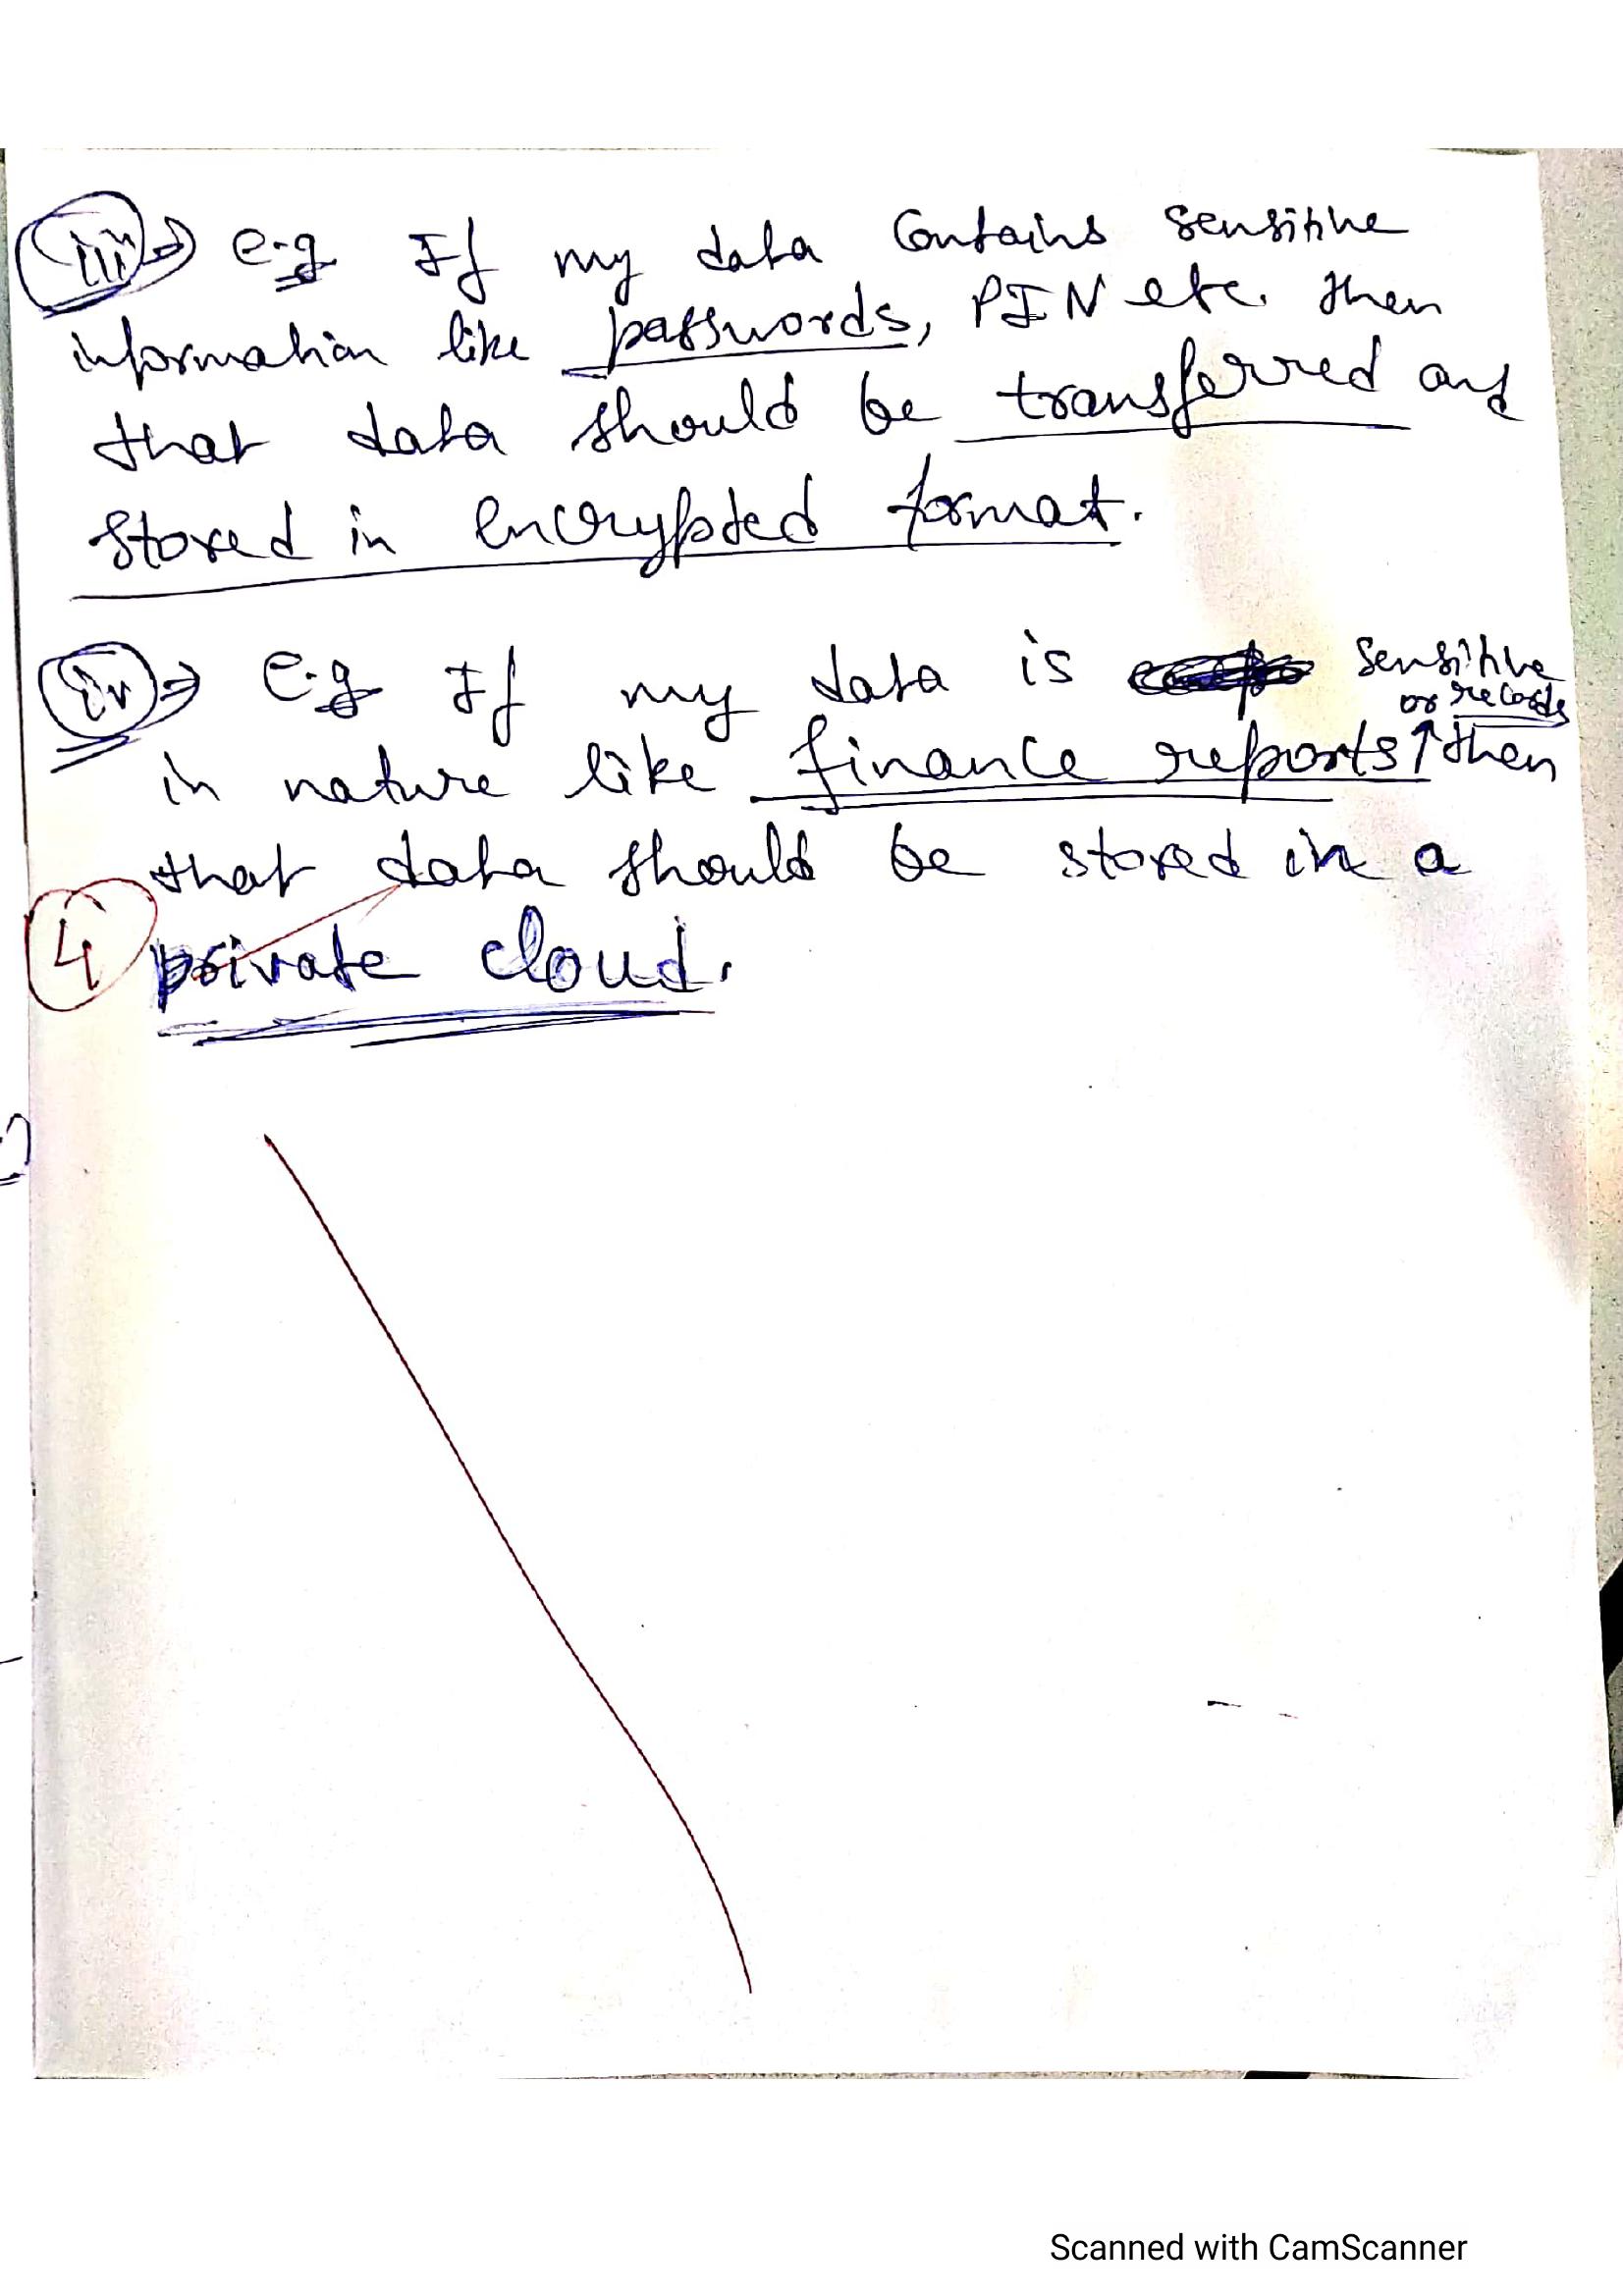 iii ⇒ e.g If my data contains sensitive
information like passwords, PIN etc. then
that data should be transferred and
stored in encrypted format.
iv ⇒ e.g If my data is sensitive
or records
in nature like finance reports ↑ then
that data should be stored in a
4 private cloud.
Scanned with CamScanner